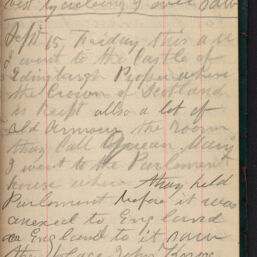 best by cicling I ever saw
Sept 15 Friday this a.m
I went to the Castle of
Edinburgh Proper where
the Crown of Scotland
is kept allso a lot of
old Armour the room
thay Call Queean Mary
I went to the Parlament
house where thay held
Parlement before it was
anexed to England
or England to it saw
the place John Knox